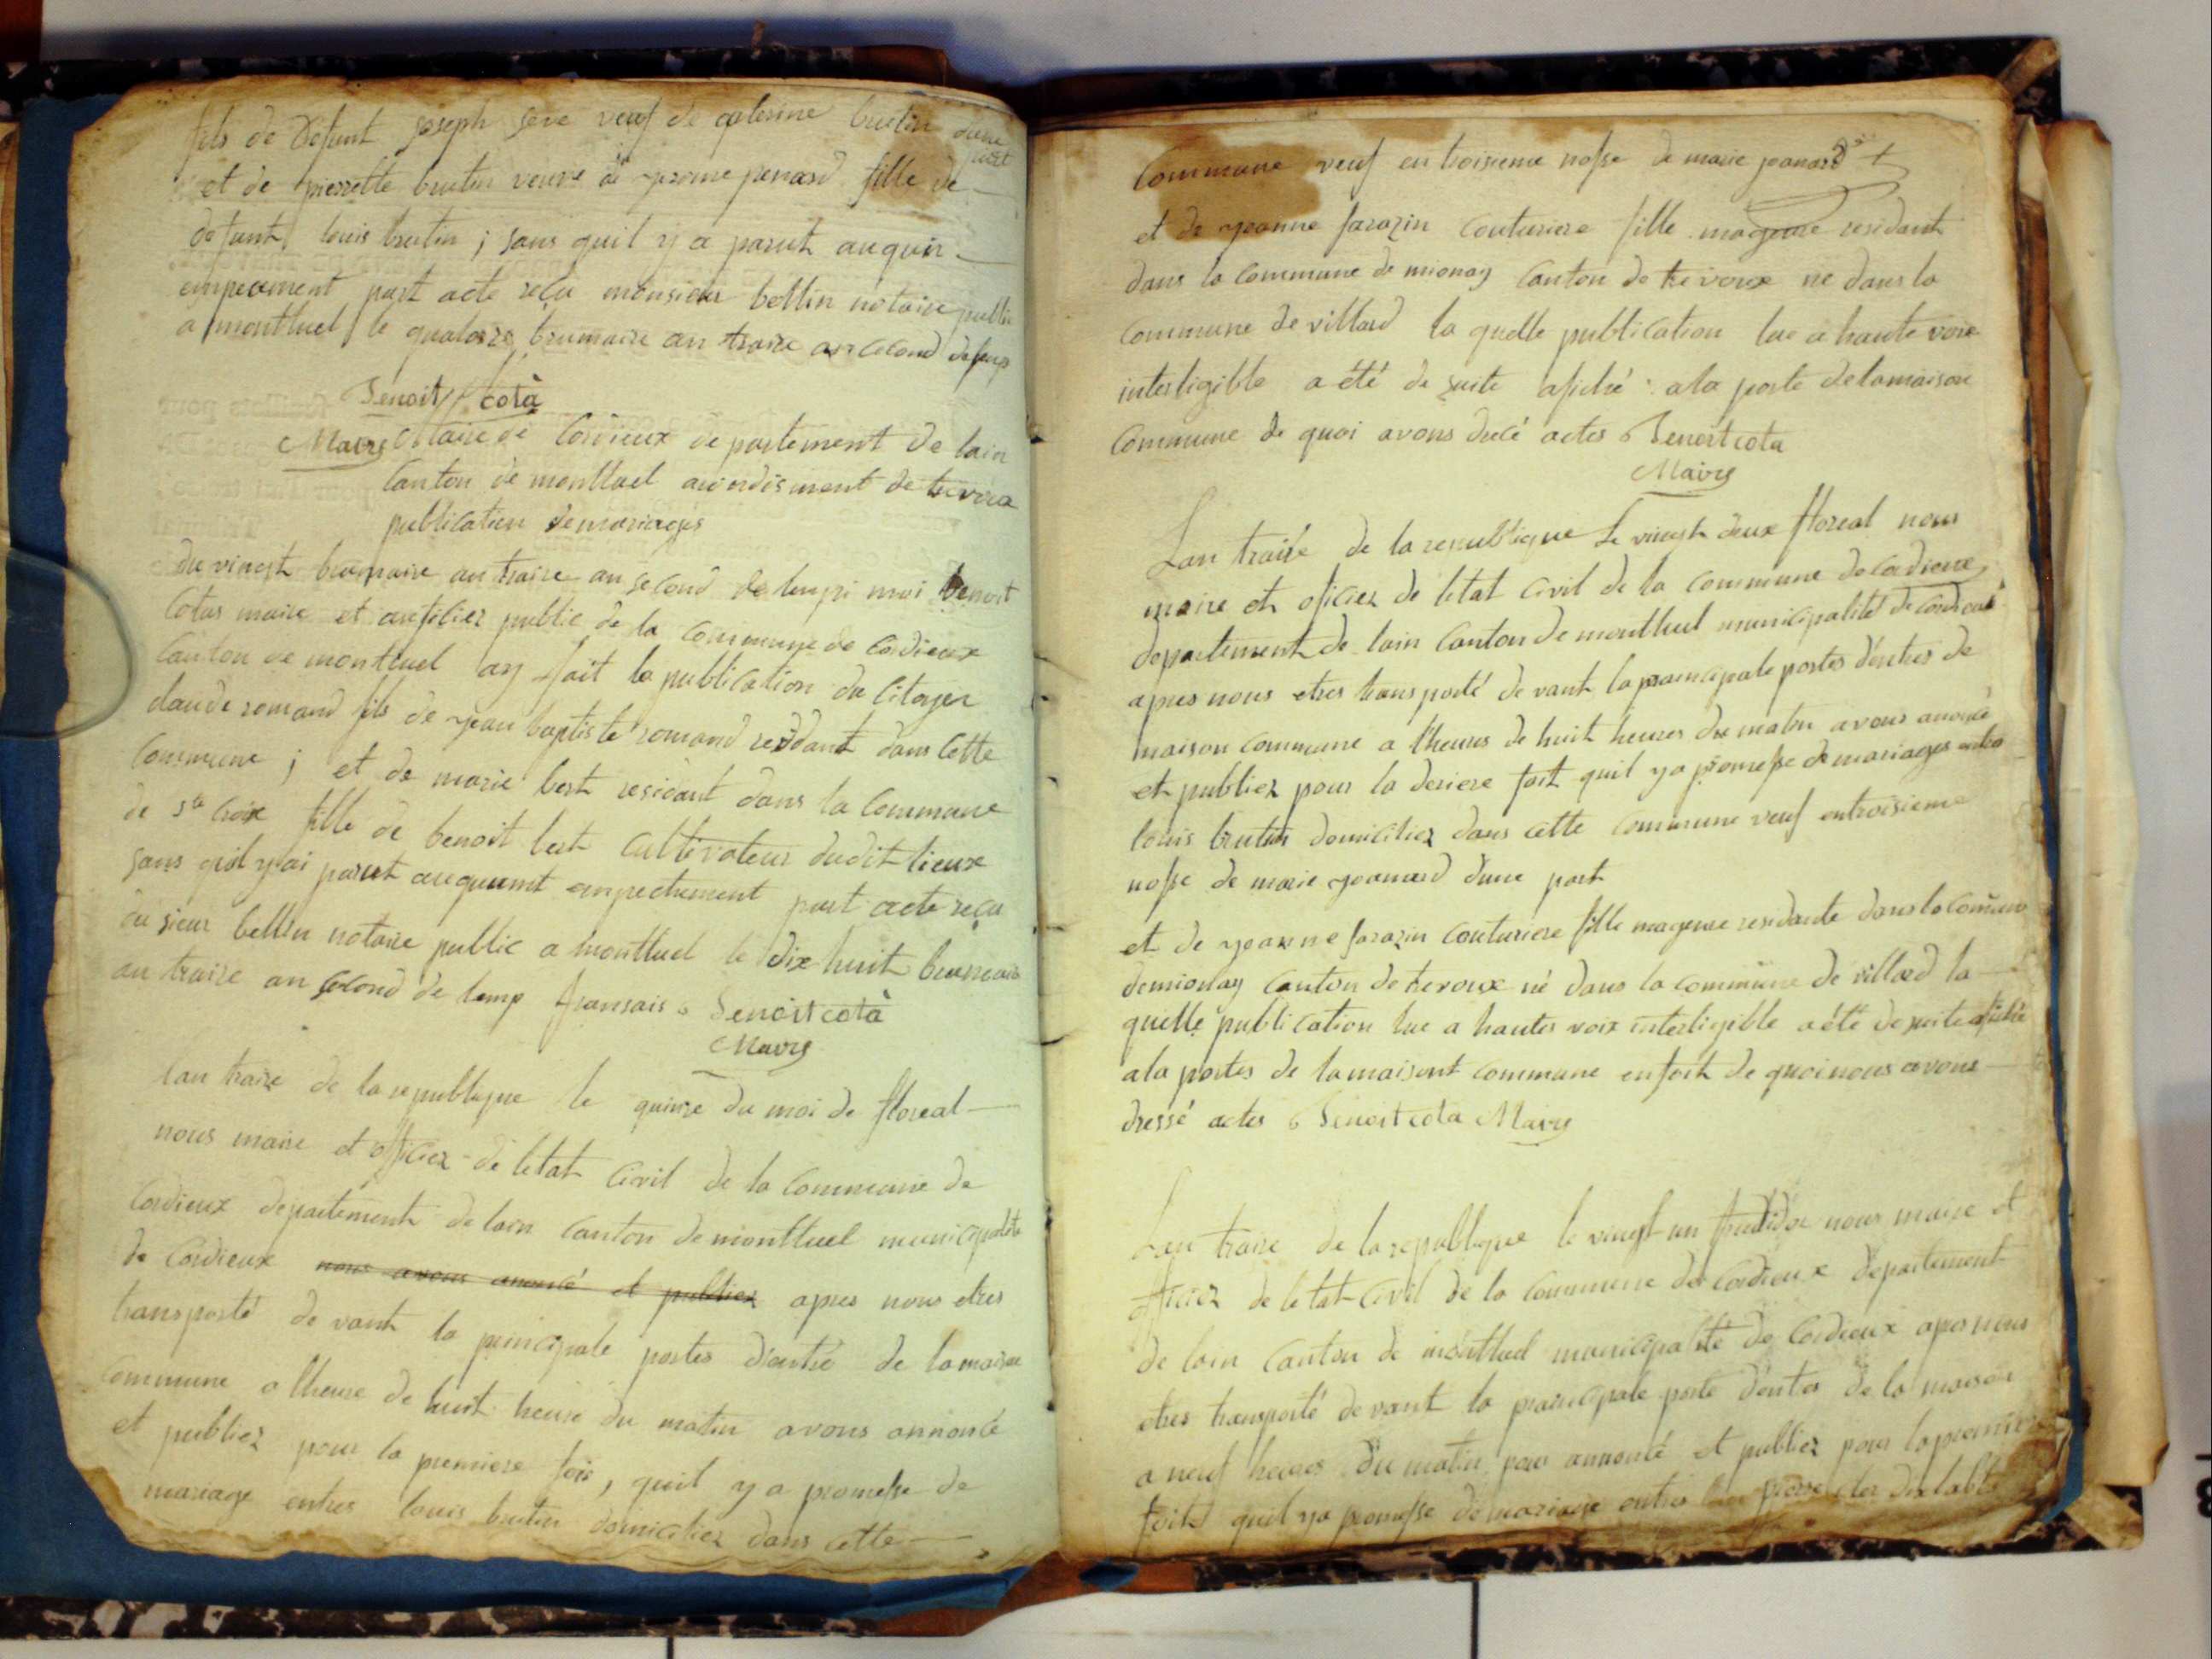 fils de defunt joseph seve veuf de caterine brutin dune
part
et de pierrette brutin veuve de yerome penard fille de
defunt louis brutin ; sans quil y a parut auquin
empecement part acte reçu monsieur bellin notaire public
a montluel le quatorze brumaire an traize an second
Benoit cotà
Maire
Mairie de Cordieux departement de lain
Canton de montluel arondisment de trevoux
publication de mariages
du vinght brumaire an traize an second de temps moi benoit
Cotas maire et aufilier public de la Commune de Cordieux
Canton de montluel ay fait la publication du Citoyen
claude romand fils de yean baptiste romand residant dans Cette
Commune ; et de marie best residant dans la Commune
de ste croix fille de benoit best cultivateur dudit lieux
sans quil y ai parut auquunt empechement part acte reçu
du sieur bellin notaire public a montluel le dix huit brumaire
an traize an second de temp fransais Benoit cotà
Maire
lan traize de la republique le quinze du moi de floreal
nous maire et oficiez de letat Civil de la Commune de
Cordieux departement de lain Canton de montluel municipalité
de Cordieux nous avons anoncé et publiez apres nous etres
transporté de vant la principale portes d'entré de la maison
Commune a lheure de huit heure du matin avons annoncé
et publiez pour la premiere fois, quil y a promesse de
mariage entres louis brutin domiciliez dans cette
Commune veuf en troisieme nosse de marie joanard
et de yeanne sarazin Couturiere fille mageure residant
dans la Commune de mionay Canton de trevoux ne dans la
Commune de villard la quelle publication lue a haute voix
interligible a été de suite afiché a la porte de la maison
Commune de quoi avons decé actes Benoit cota
Maire
Lan traize de la republique Le vinght deux floreal nous
maire et oficiez de letat Civil de la Commune de Cordieux
departement de lain Canton de montluel municipalité de Cordieux
apres nous etres transporté de vant la principale portes dentres de
maison commune a lheures de huit heures du matin avons anoncé
et publiez pour la deriere foit quil y a promesse de mariages entres
louis brutin domiciliez dans cette Commune veuf entroisieme
nosse de marie yoanard dune part
et de yeanne sarazin Couturiere fille mageure residante dans la Commune
de mionay Canton de trevoux né dans la commune de villard la
quelle publication lue a hautes voix interligible a été de suite afiché
a la portes de la maisont commune enfoit de quoi nous avons
dressé actes Benoit cota Maire
Lan traize de la republique le vinght un fructidor nous maire et
oficiez de letat Civil de la Commune de Cordieux departement
de lain Canton de montluel municipalité de Cordieux apres nous
etres transporté devant la principale porte dentes de la maison
a neuf heures du matin pour annoncé et publiez pour la premiere
foit quil ya promesse de mariage entres pierre